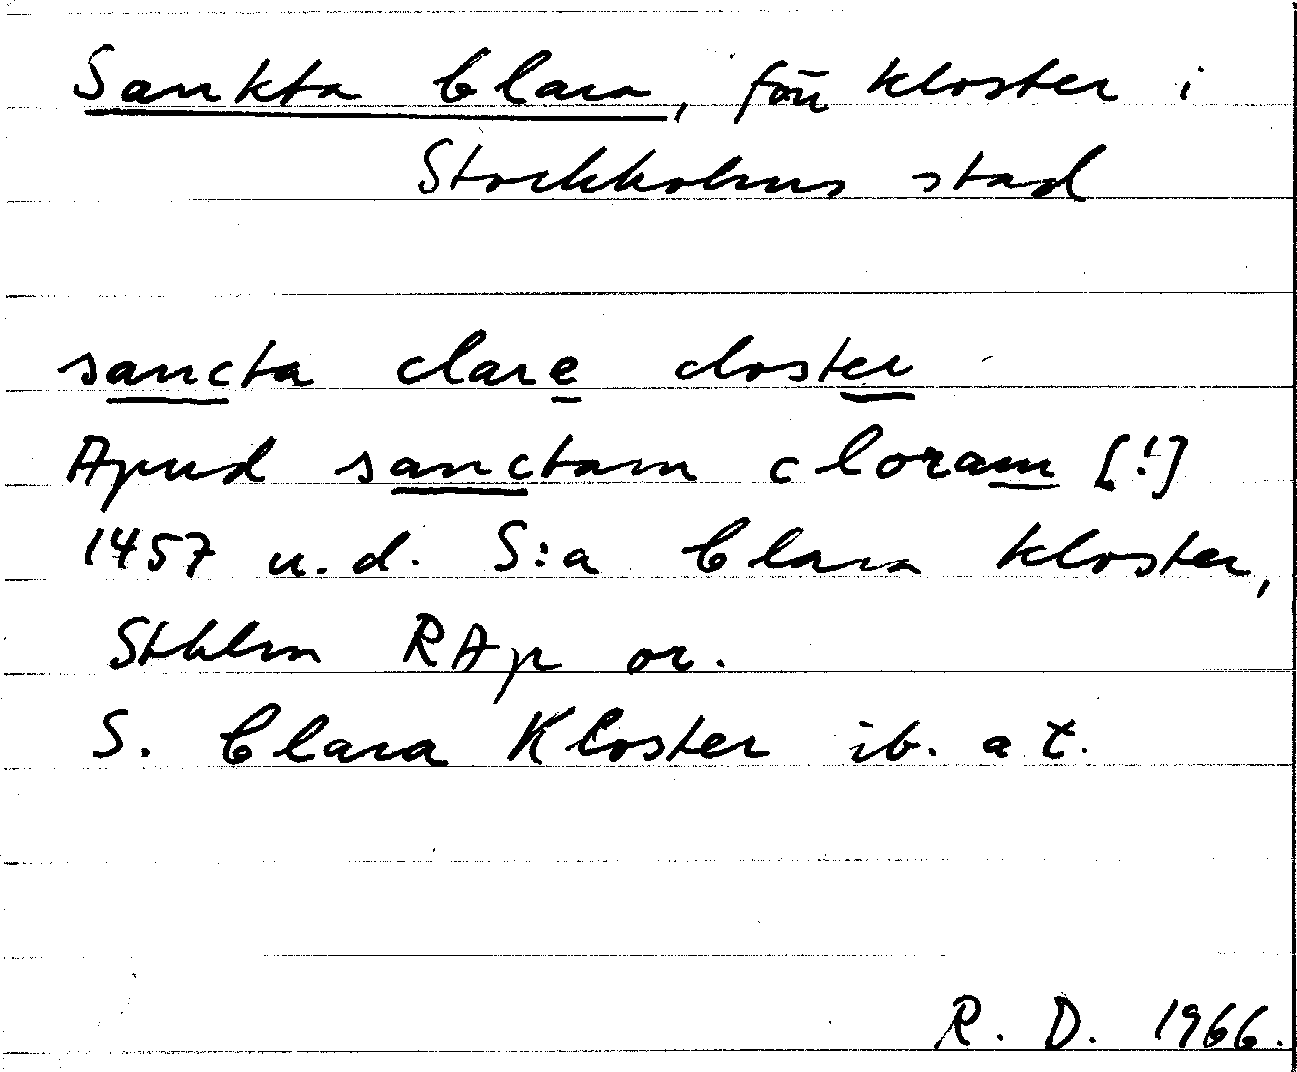 Sankta Clara, förr kloster i
Stockholms stad
sancta clare closter
Apud sanctam cloram [!]
1457 u.d. S:a Clara kloster,
Sthlm RAp or.
S. Clara Kloster ib. a t.
R. D. 1966.